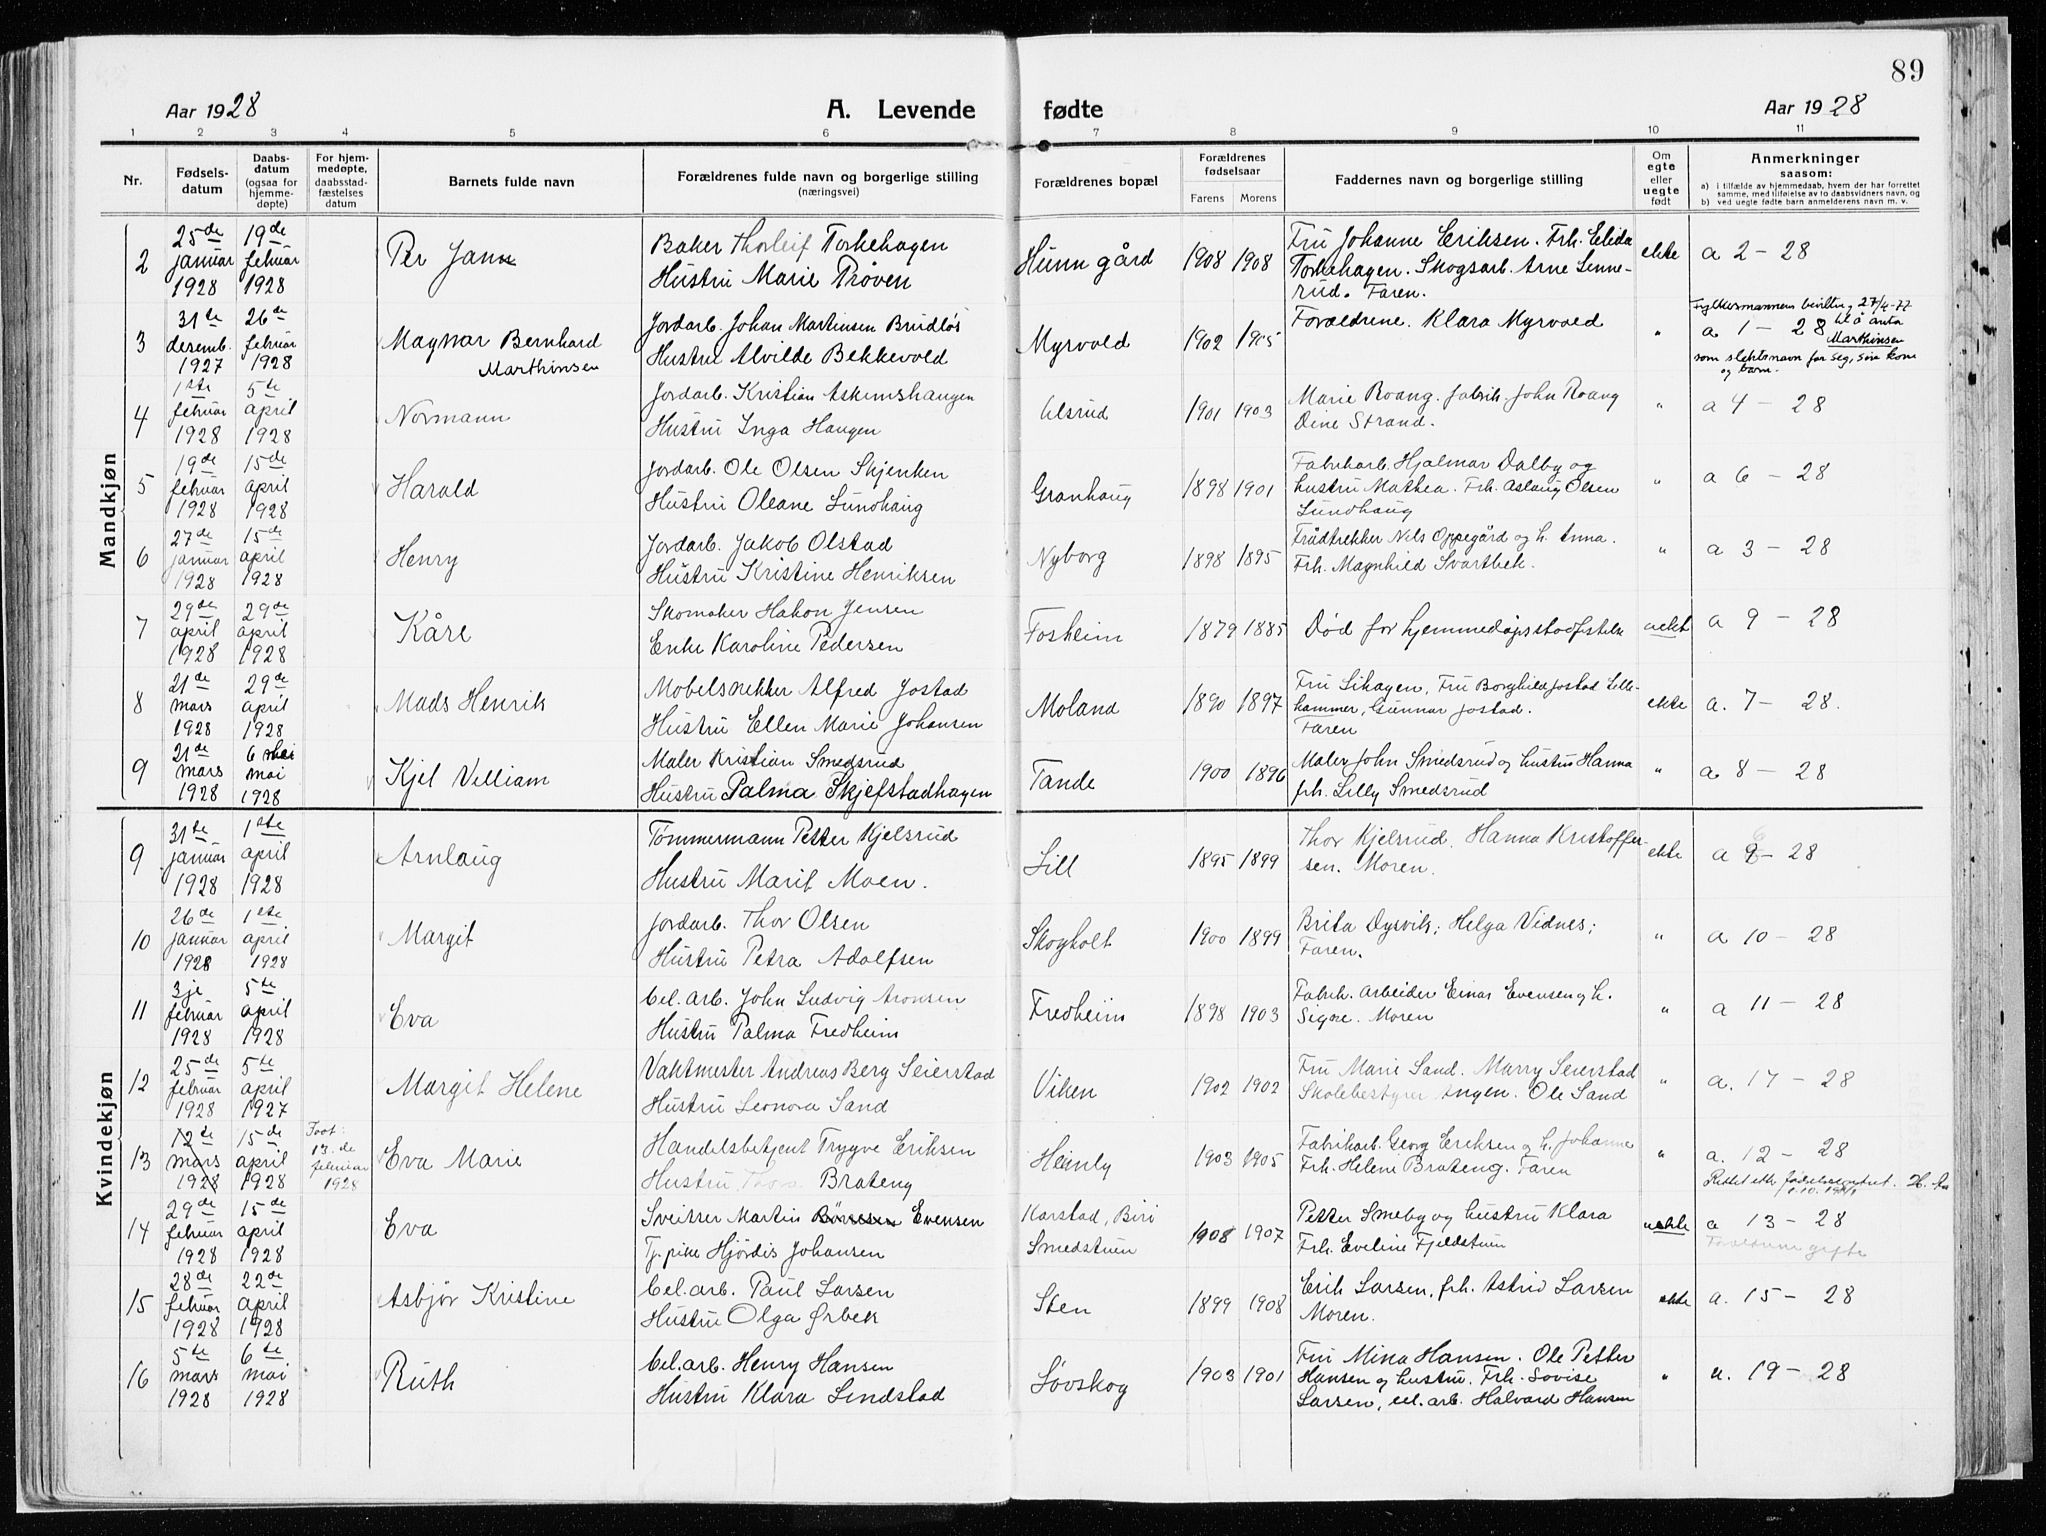 89
Aar 1928 A. Levende fødte Aar 1928
1 2 3 4 5 6 7 8 9 10 11
Nr. Fødsels-datum Daabs-datum (ogsaa for hjemme-døpte) For hjem-medøpte, daabsstad-fæstelses datum Barnets fulde navn Forældrenes fulde navn og borgerlige stilling (næringsvei) Forældrenes bopæl Forældrenes fødselsaar Farens Morens Faddernes navn og borgerlige stilling Om egte eller uegte født Anmerkninger saasom:
a) i tilfælde av hjemmedaab, hvem der har forrettet samme, med tilføielse av to daabsvidners navn, og
b) ved uegte fødte barn anmelderens navn m. v.
Mandkjøn
2 25de januar 1928 19de februar 1928 Per Jann Baker Thorleif Torkehagen Hustru Marie Prøven Hunn gård 1908 1908 Fru Johanne Eriksen. Frk. Elida Torkehagen. Skogsarb. Arne Linnerud. Faren. ekte a 2 – 28
3 31te desemb. 1927 26de februar 1928 Magnar Bernhard Marthinsen Jordarb. Johan Martinsen Brudløs Hustru Alvilde Bekkevold Myrvold 1902 1905 Foreldrene. Klara Myrvold " a 1 – 28 Fylkesmannens bevilln, 27/4-77 til å anta Marthinsen som slektsnavn for seg, sin kone og barn.
4 1ste februar 1928 5te april 1928 Normann Jordarb. Kristian Askimshaugen Hustru Inga Haugen Ulsrud 1901 1903 Marie Roang. fabrik. John Roang Dine Strand. " a 4 – 28
5 19de februar 1928 15de april 1928 Harald Jordarb. Ole Olsen Skjenken Hustru Oleane Lundhaug Granhaug 1898 1901 Fabrikarb. Hjalmar Dalby og hustru Mathea. Frk. Aslaug Olsen Lundhaug " a 6 – 28
6 27de januar 1928 15de april 1928 Henry Jordarb. Jakob Olstad Hustru Kristine Henriksen Nyborg 1898 1895 Trådtrekker Nils Oppegård og h. Anna. Frk. Magnhild Svartbek. " a 3 – 28
7 29de april 1928 29de april 1928 Kåre Skomaker Håkon Jensen Enke Karoline Pedersen Fosheim 1879 1885 Død før hjemmedåpsstadfestelse uekt a 9 – 28
8 21de mars 1928 29de april 1928 Mads Henrik Møbelsnekker Alfred Jostad Hustru Ellen Marie Johansen Moland 1890 1897 Fru Lihagen, Fru Borghild Jostad Lillehammer, Gunnar Jostad. Faren ekte a. 7 – 28.
9 21de mars 1928 6 mai 1928 Kjel Villiam Maler Kristian Smedsrud Hustru Palma Skjefstadhagen Tande 1900 1896 Maler John Smedsrud og hustru Hanna frk. Lilly Smedsrud " a. 8 – 28
Kvindekjøn
9 31te januar 1928 1ste april 1928 Arnlaug Tømmermann Petter Kjelsrud Hustru Marit Moen. Lill 1895 1899 Thor Kjelsrud. Hanna Kristoffersen. Moren. ekte a – 28
10 26de januar 1928 1ste april 1928 Margit Jordarb. Thor Olsen Hustru Petra Adolfsen Skogholt 1900 1899 Brita Dysvik; Helga Vidnes; Faren. " a 10 – 28
11 3je februar 1928 5te april 1928 Eva Cel. arb. John Ludvig Aronsen Hustru Palma Fredheim Fredheim 1898 1903 Fabrik. arbeider Einar Evensen og h. Signe. Moren " a 11 – 28
12 25de februar 1928 5te april 1927 Margit Helene Vaktmester Andreas Berg Seierstad Hustru Leonora Sand Viken 1902 1902 Fru Marie Sand. Marry Seierstad Skolebestyrer Engen. Ole Sand " a. 17 – 28
13 12te mars 1928 15de april 1928 Født: 13.de februar 1928 Eva Marie Handelsbetjent Trygve Eriksen Hustru Thora Bråteng Heimly 1903 1905 Fabrikarb. Georg Eriksen og h. Johanne Frk. Helene Bråteng. Faren " a. 12 – 28 Rettet etter fødselsregistret.
14 29de februar 1928 15de april 1928 Eva Sveitser Martin Evensen Tj. pike Hjørdis Johansen Karstad, Biri Smedstuen 1908 1907 Petter Smeby og hustru Klara Frk. Eveline Fjeldstuen uekte a 13 – 28 Foreldrene gifte
15 28de februar 1928 22de april 1928 Asbjør Kristine Cel. arb. Paul Larsen Hustru Olga Ørbek Sten 1899 1908 Erik Larsen, frk. Astrid Larsen Moren. ekte a. 15 – 28
16 5te mars 1928 6te mai 1928 Ruth Cel. arb. Henry Hansen Hustru Klara Lindstad Løvskog 1903 1901 Fru Mina Hansen. Ole Petter Hansen og hustru. Frk. Lovise Larsen, cel. arb. Halvard Hansen " a. 19 – 28